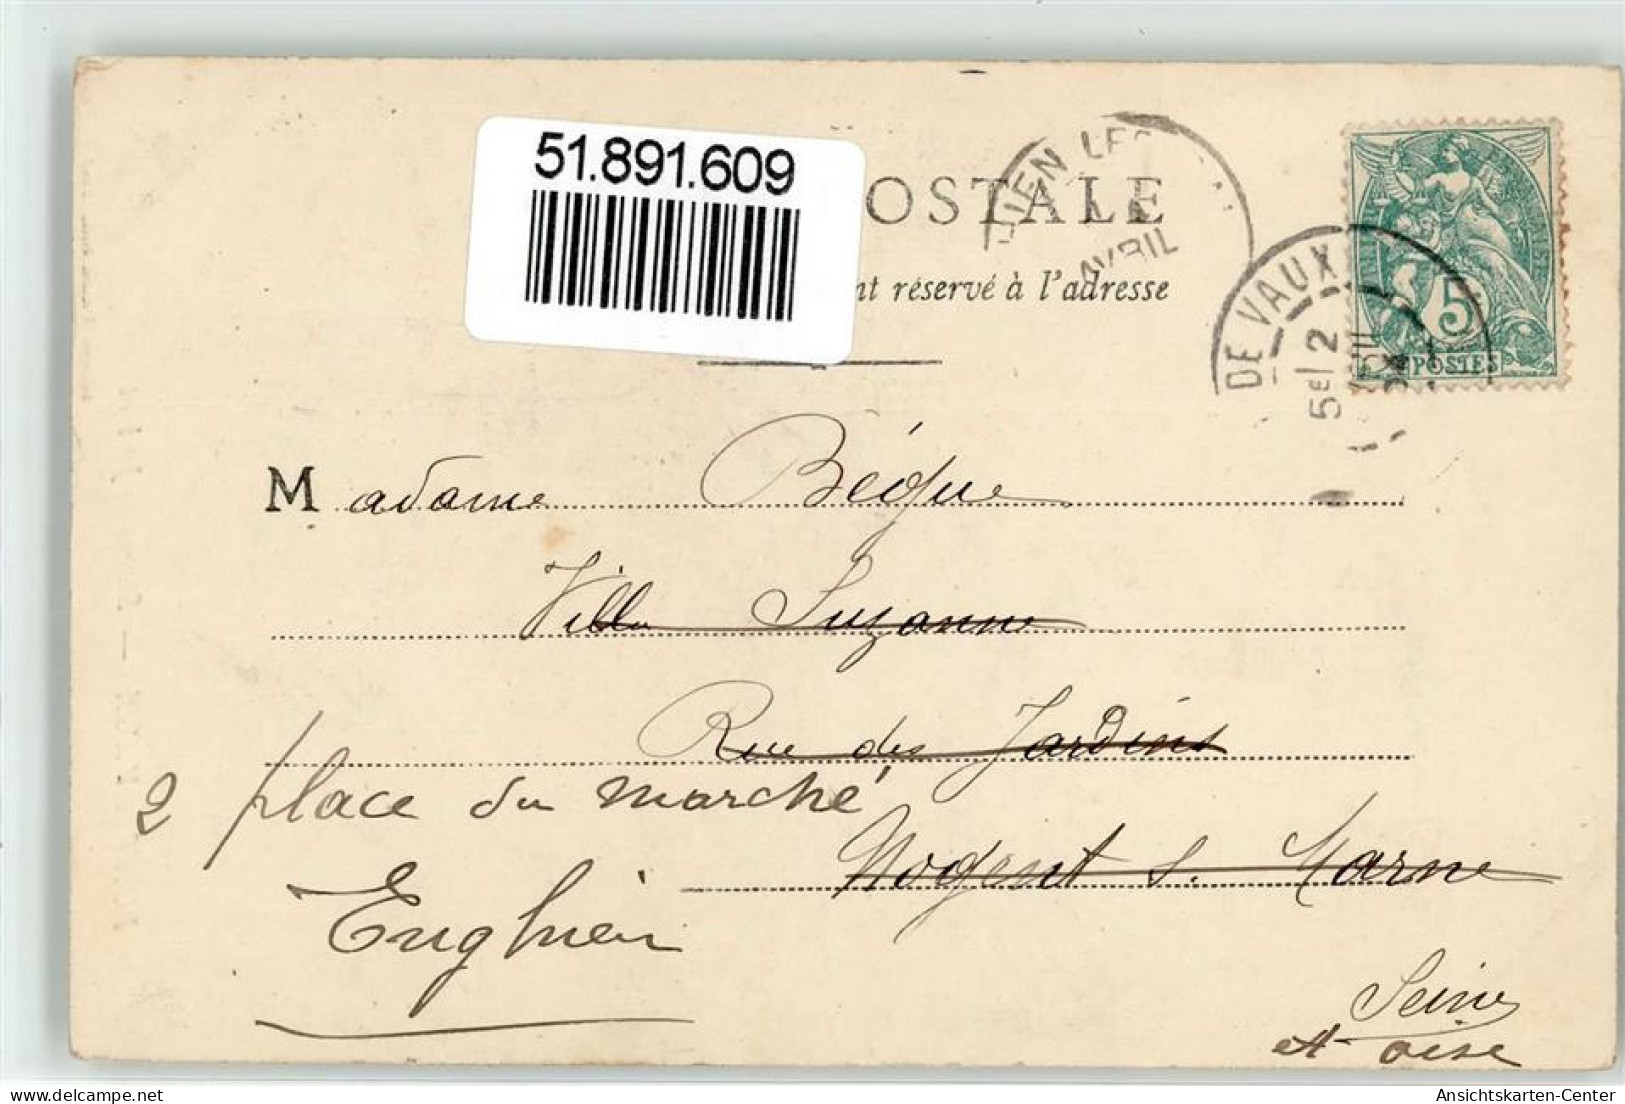 51.891.609
OSTALE
nt réservé à l'adresse
IEN LES
AVRIL
DE VAUX
5E 2
5
POSTES
Madame Bégue
Villa Suzanne
Rue des Jardins
2 place du marché
Nogent s. Marne
Enghien
Seine
et oise
Ansichtskarten-Center